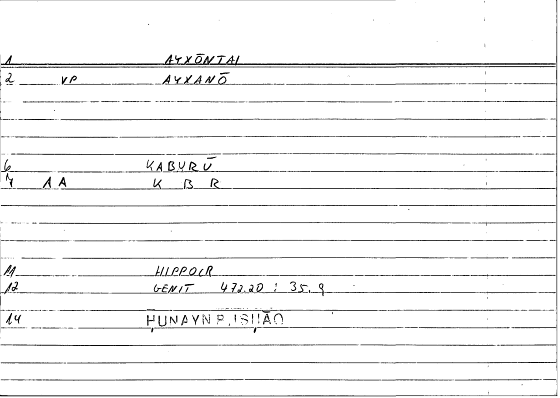 1 AYXŌNTAI
2 VP AYXANŌ
6 KABURŪ
7 AA K B R
11 HIPPOCR
12 GENIT 472.20 : 35.9
14 ḤUNAYN B. ISḤĀQ